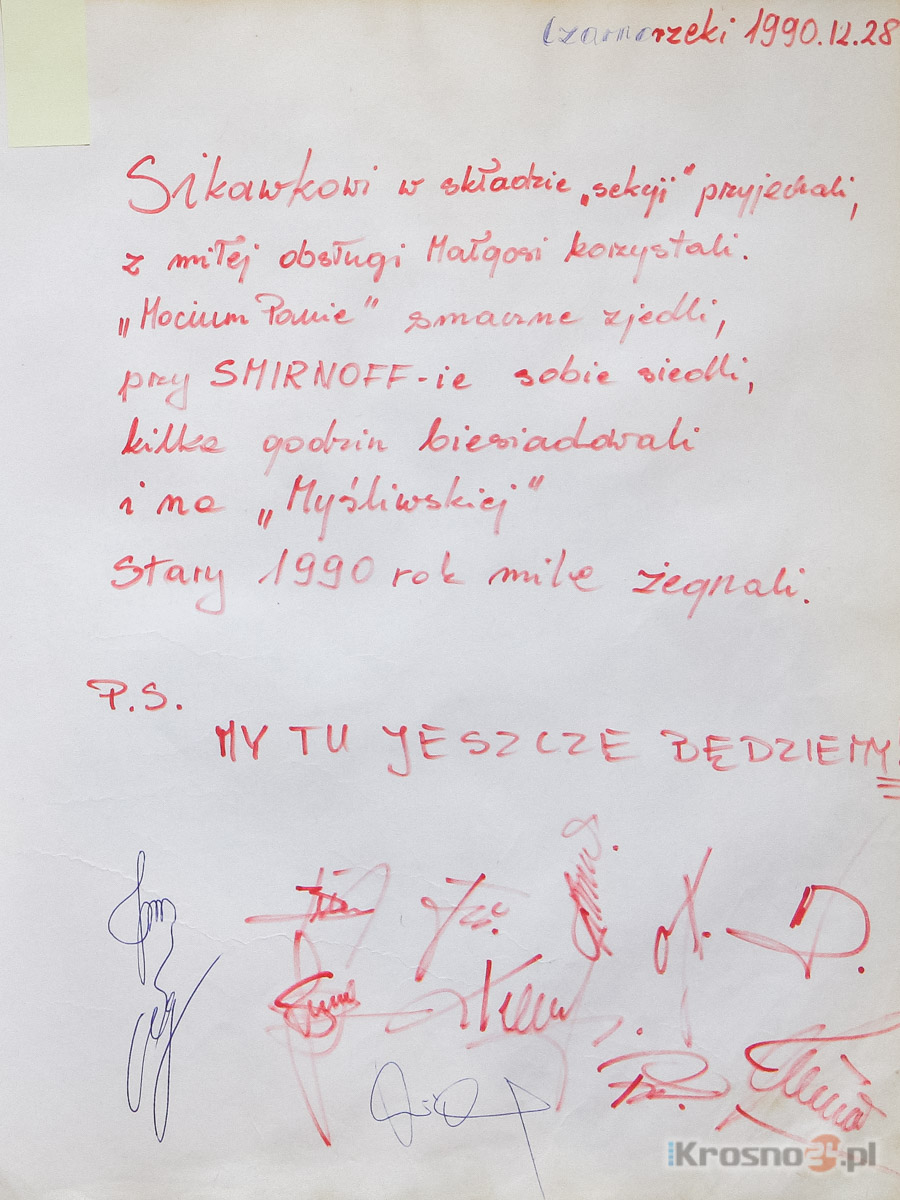 Czarnorzeki 1990.12.28
Sikawkowi w składzie „sekcji" przyjechali,
z miłej obsługi Małgosi korzystali.
„Mocium Panie" smaczne zjedli,
przy SMIRNOFF-ie sobie siedli,
kilka godzin biesiadowali
i na „Myśliwskiej"
Stary 1990 rok mile żegnali.
P.S.
MY TU JESZCZE BĘDZIEMY!
Krosno24.pl